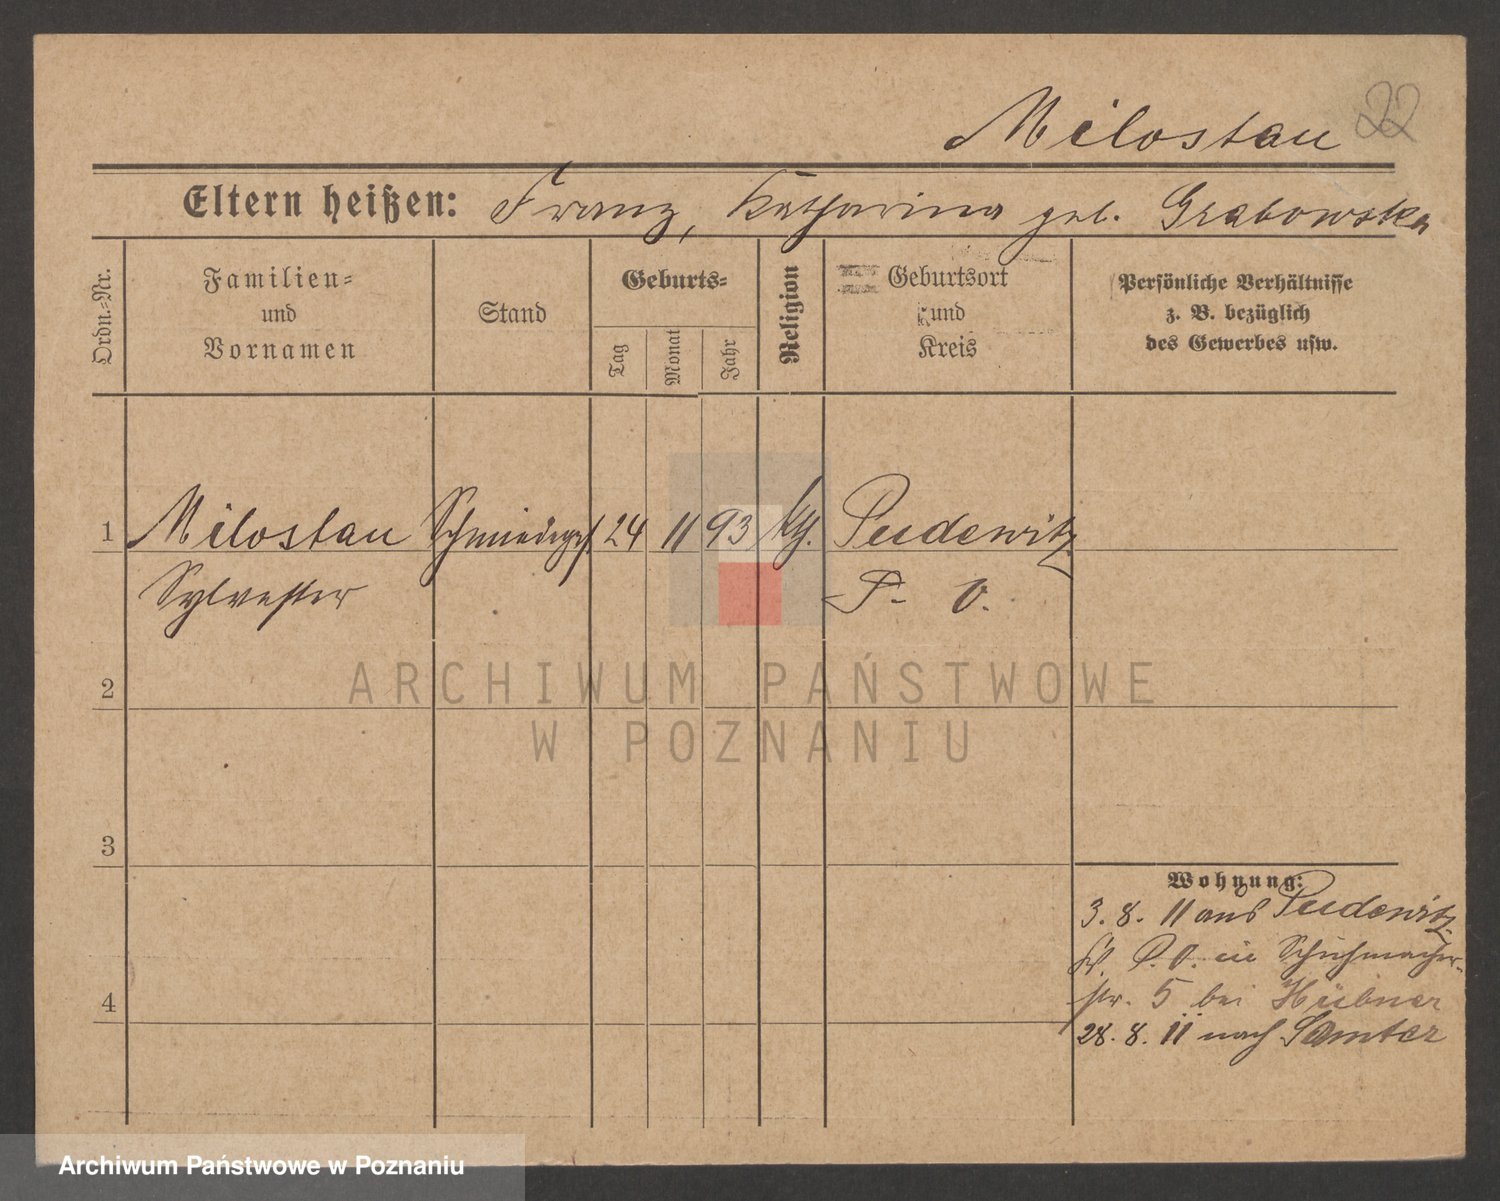 Milostan 22
Eltern heißen: Franz, Katharina geb. Grabowska
Ordn.-Nr.
Familien-
und
Vornamen
Stand
Geburts-
Tag
Monat
Jahr
Religion
Geburtsort
und
Kreis
Persönliche Verhältnisse
z. B. bezüglich
des Gewerbes usw.
1 Milostan Schmiedeges. 24 11 93 kth. Pudewitz
Sylvester P. O.
2
3
4
Wohnung:
3. 8. 11 aus Pudewitz
Kr. P. O. in Schuhmacher-
str. 5 bei Hübner
28. 8. 11 nach Samter
ARCHIWUM PAŃSTWOWE
W POZNANIU
Archiwum Państwowe w Poznaniu